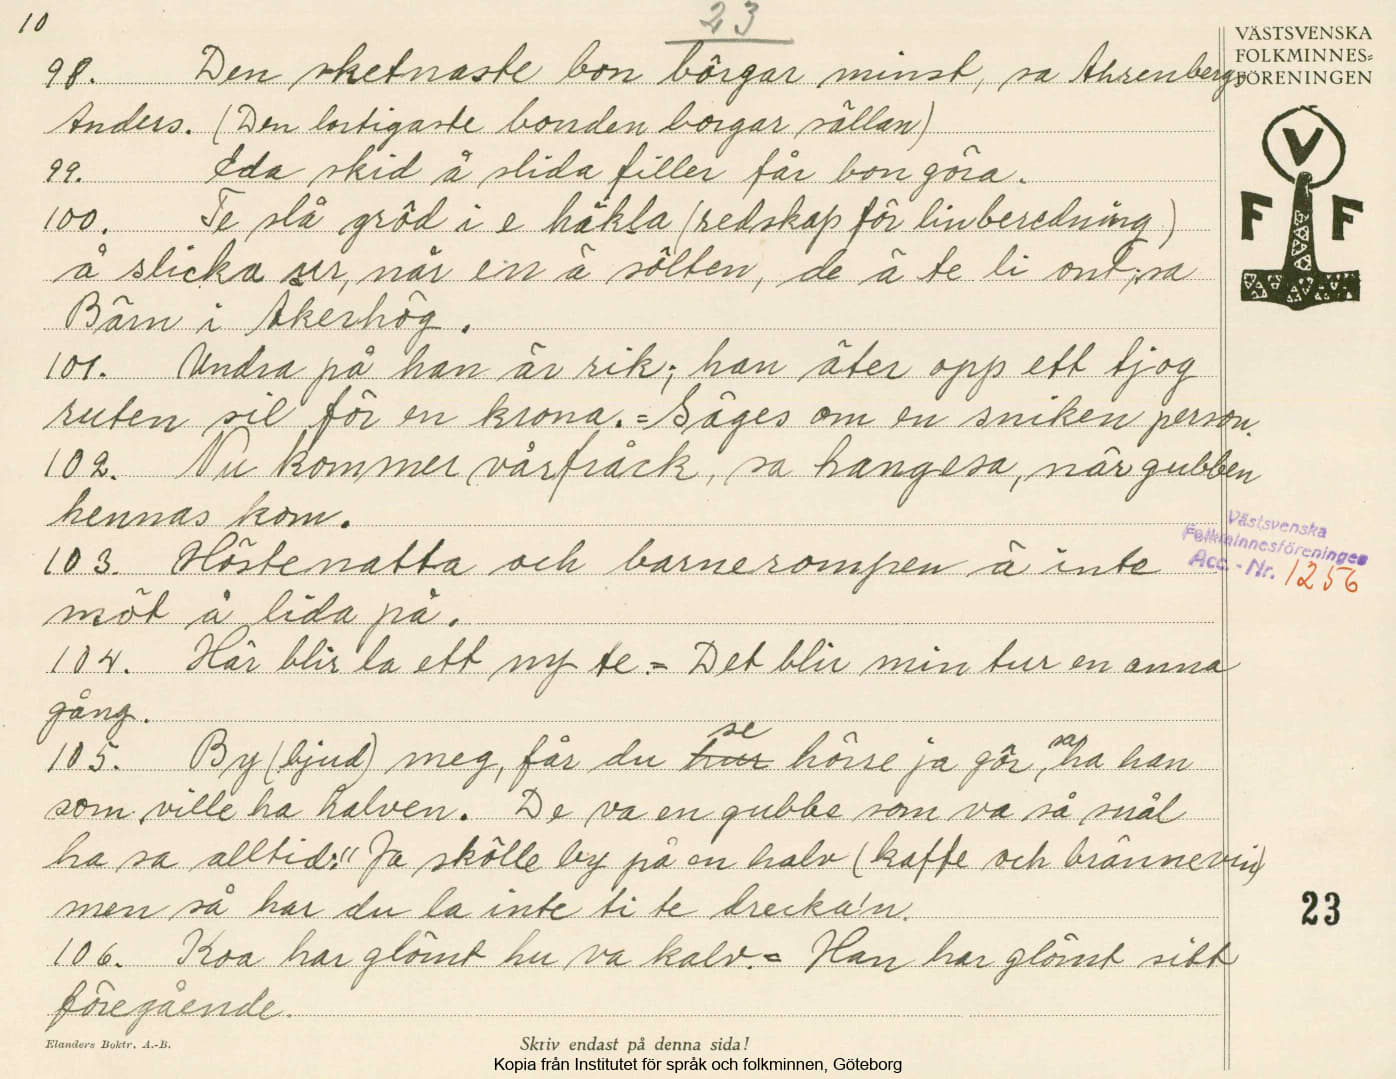 10
23
VÄSTSVENSKA
FOLKMINNES=
FÖRENINGEN
V
F F
98. Den sketnaste bon börgar minst, sa Ahrenbergs
Anders. (Den lortigaste bonden borgar sällan)
99. Eda skid å slida filler får bon göra.
100. Te slå gröd i e häkla (redskap för linberedning)
å slicka ur, når en ä sölten, de ä te li ont, sa
Bärn i Akerhög.
101. Undra på han är rik; han äter opp ett tjog
ruten sil för en krona. = Säges om en sniken person.
102. Nu kommer vårfråck, sa hangesa, när gubben
hennas kom.
103. Höstenatta och barnerompen ä inte
möt å lida på.
104. Här blir la ett ny te. = Det blir min tur en anna
gång.
105. By (bjud) meg, får du se hörre ja gör, sa ha han
som ville ha halven. De va en gubbe som va så snål
ha sa alltid: "Ja skölle by på en halv (kaffe och brännevin)
men så har du la inte ti te drecka'n.
106. Koa har glömt hu va kalv. = Han har glömt sitt
föregående.
Västsvenska
Folkminnesföreningen
Acc. - Nr. 1256
23
Elanders Boktr. A.-B.
Skriv endast på denna sida!
Kopia från Institutet för språk och folkminnen, Göteborg